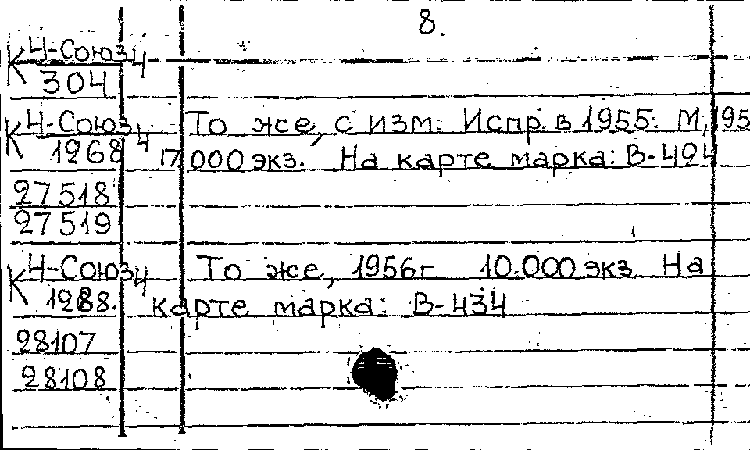 8.
К Ч-Союз 4
304
К Ч-Союз 4 То же, с изм. Испр. в 1955. М, 195
1268 17.000 экз. На карте марка: В-494
27518
27519
К Ч-Союз 4 То же, 1956г 10.000 экз. На
1288. карте марка: В-434
28107
28108